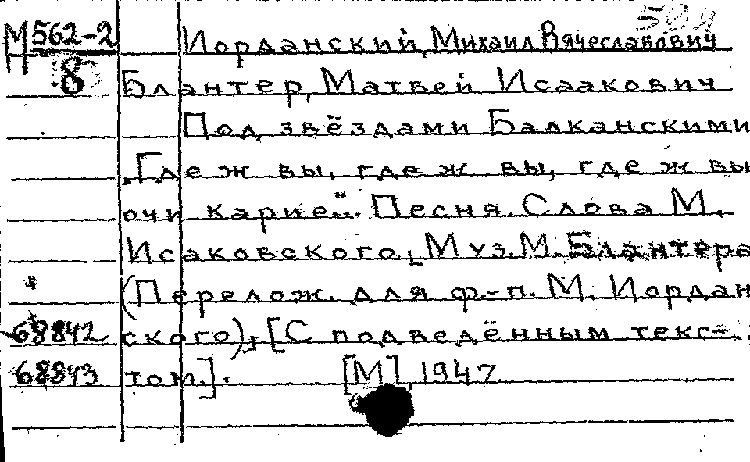 М 562-2 Иорданский, Михаил Вячеславович
8 Блантер, Матвей Исаакович
Под звёздами Балканскими
"Где ж вы, где ж вы, где ж вы
очи карие"... Песня. Слова М.
Исаковского, Муз. М. Блантера
(Перелож. для ф.-п. М. Иордан
68842 ского), [С подведённым текс-
68843 том.]. [М], 1947